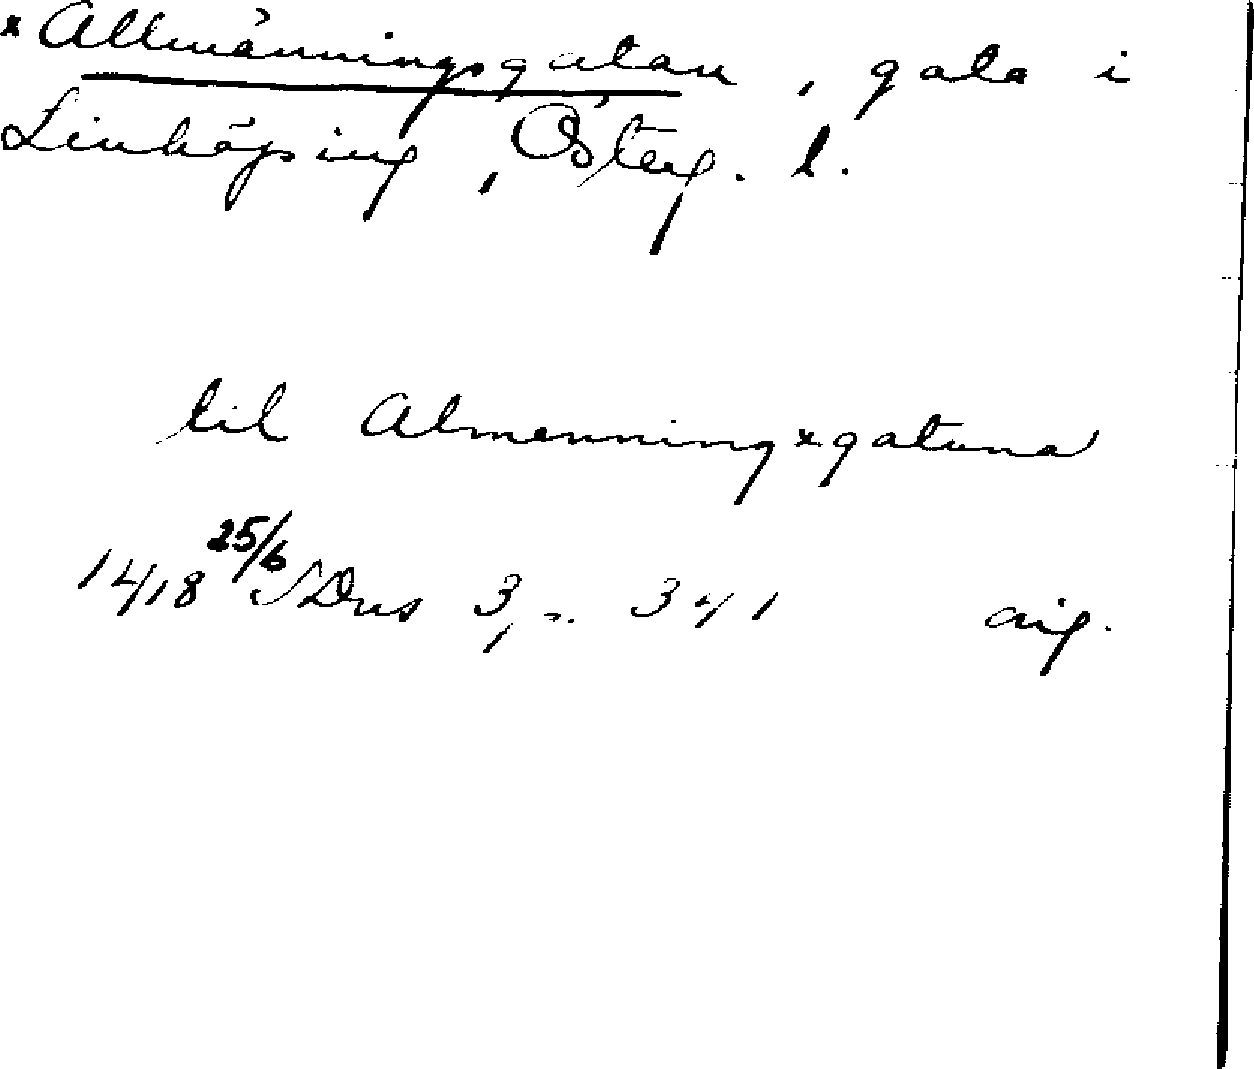 * Allmänningsgatan, gata i
Linköping, Österg. l.
til Almenningxgatuna
1418 25/6 SDns 3, s. 341 orig.